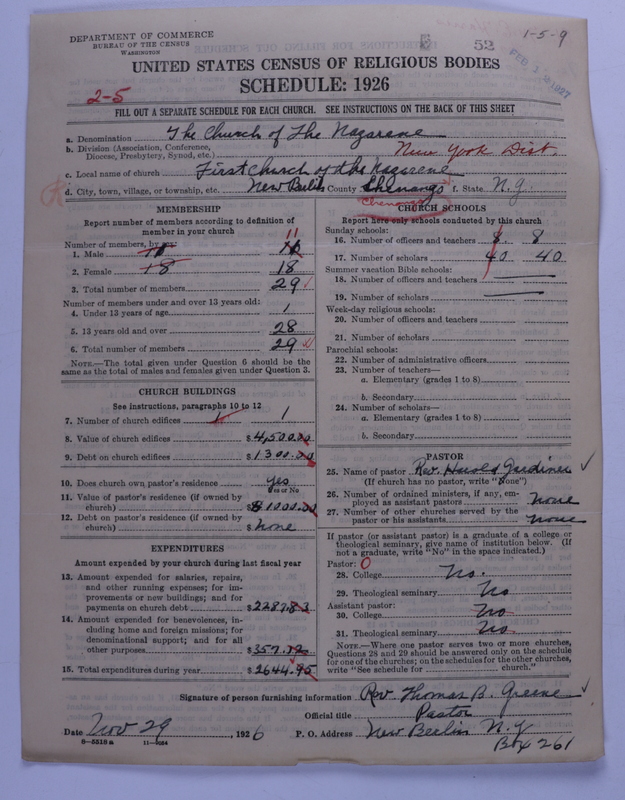 DEPARTMENT OF COMMERCE
BUREAU OF THE CENSUS
WASHINGTON
E 52
1-5-9
FEB 1 1927
UNITED STATES CENSUS OF RELIGIOUS BODIES
SCHEDULE: 1926
2-5
FILL OUT A SEPARATE SCHEDULE FOR EACH CHURCH. SEE INSTRUCTIONS ON THE BACK OF THIS SHEET
a. Denomination The Church of The Nazarene
b. Division (Association, Conference, Diocese, Presbytery, Synod, etc.) New York Dist.
c. Local name of church First Church of the Nazarene
d. City, town, village, or township, etc. New Berlin County Chenango f. State N.Y.
Chenango
MEMBERSHIP
Report number of members according to definition of
member in your church
Number of members, by sex:
11
1. Male
2. Female 18 18
3. Total number of members 29
Number of members under and over 13 years old:
4. Under 13 years of age 1
5. 13 years old and over 28
6. Total number of members 29
NOTE.—The total given under Question 6 should be the
same as the total of males and females given under Question 3.
CHURCH BUILDINGS
See instructions, paragraphs 10 to 12
7. Number of church edifices 1 1
8. Value of church edifices $4,500.00
9. Debt on church edifices $1300.00
10. Does church own pastor's residence yes
Yes or No
11. Value of pastor's residence (if owned by
church) $1000.00
12. Debt on pastor's residence (if owned by
church) $ None
EXPENDITURES
Amount expended by your church during last fiscal year
13. Amount expended for salaries, repairs,
and other running expenses; for im-
provements or new buildings; and for
payments on church debt $2287.83
14. Amount expended for benevolences, in-
cluding home and foreign missions; for
denominational support; and for all
other purposes $357.12
15. Total expenditures during year $2644.95
CHURCH SCHOOLS
Report here only schools conducted by this church
Sunday schools:
16. Number of officers and teachers 8 8
17. Number of scholars 40 40
Summer vacation Bible schools:
18. Number of officers and teachers
19. Number of scholars
Week-day religious schools:
20. Number of officers and teachers
21. Number of scholars
Parochial schools:
22. Number of administrative officers
23. Number of teachers—
a. Elementary (grades 1 to 8)
b. Secondary
24. Number of scholars—
a. Elementary (grades 1 to 8)
b. Secondary
PASTOR
25. Name of pastor Rev. Harold Gardiner
(If church has no pastor, write "None")
26. Number of ordained ministers, if any, em-
ployed as assistant pastors none
27. Number of other churches served by the
pastor or his assistants none
If pastor (or assistant pastor) is a graduate of a college or
theological seminary, give name of institution below. (If
not a graduate, write "No" in the space indicated.)
Pastor: O
28. College No.
29. Theological seminary No
Assistant pastor:
30. College No
31. Theological seminary No.
NOTE.—Where one pastor serves two or more churches,
Questions 28 and 29 should be answered only on the schedule
for one of the churches; on the schedules for the other churches,
write "See schedule for church."
Signature of person furnishing information Rev. Thomas B. Greene
Official title Pastor
Date Nov 29, 1926 P. O. Address New Berlin N.Y
Box 261
8-5518 a 11-9064